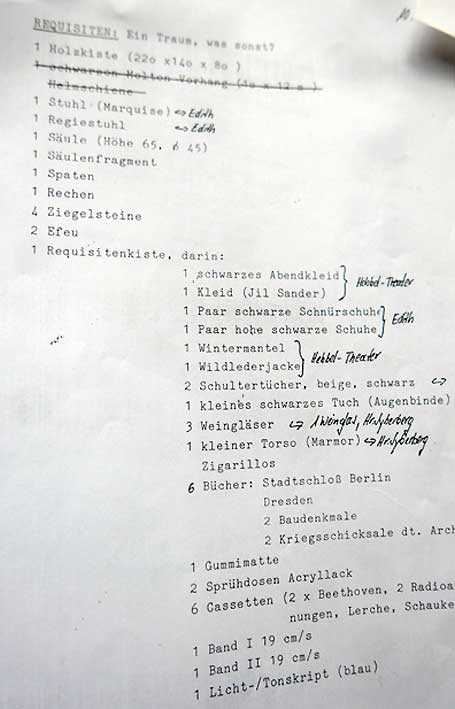 REQUISITEN: Ein Traum, was sonst?
1 Holzkiste (220 x140 x 80 )
1 schwarzen Molton Vorhang (10 x 12 m )
1 Stuhl (Marquise) ↔ Edith
1 Regiestuhl ↔ Edith
1 Säule (Höhe 65, 6 45)
1 Säulenfragment
1 Spaten
1 Rechen
4 Ziegelsteine
2 Efeu
1 Requisitenkiste, darin:
1 schwarzes Abendkleid
1 Kleid (Jil Sander) } Hebbel-Theater
1 Paar schwarze Schnürschuhe
1 Paar hohe schwarze Schuhe } Edith
1 Wintermantel
1 Wildlederjacke } Hebbel-Theater
2 Schultertücher, beige, schwarz ↔
1 kleines schwarzes Tuch (Augenbinde)
3 Weingläser ↔ 1 Weinglas, Hr. Syberberg
1 kleiner Torso (Marmor) ↔ Hr. Syberberg
Zigarillos
6 Bücher: Stadtschloß Berlin
Dresden
2 Baudenkmale
2 Kriegsschicksale dt. Arch
1 Gummimatte
2 Sprühdosen Acryllack
6 Cassetten (2 x Beethoven, 2 Radioa
nungen, Lerche, Schauke
1 Band I 19 cm/s
1 Band II 19 cm/s
1 Licht-/Tonskript (blau)